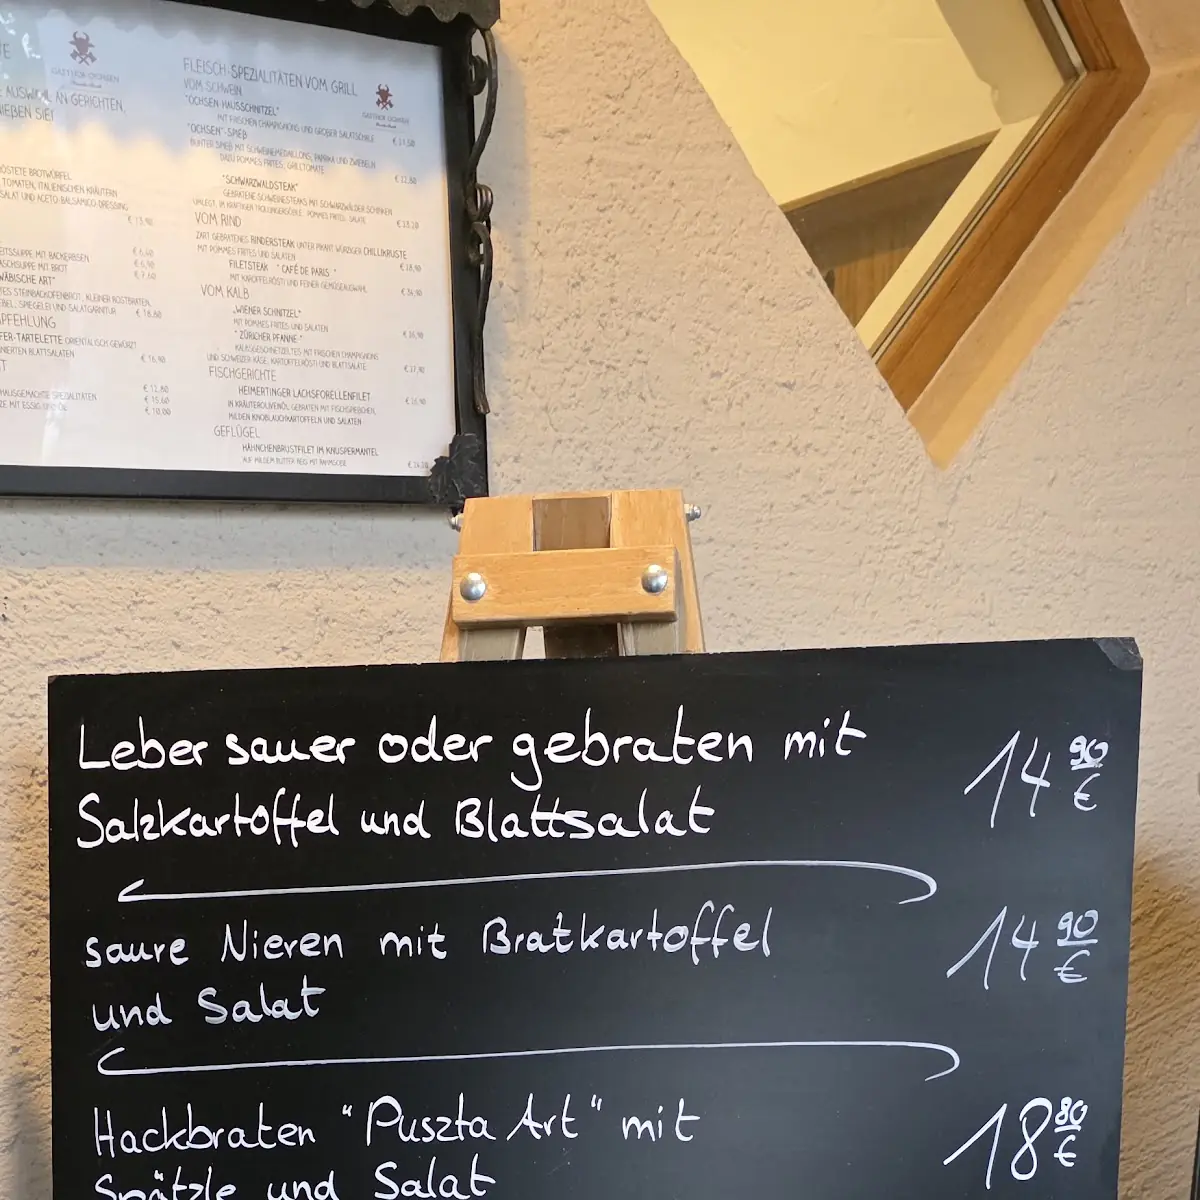 GASTHOF OCHSEN
E AUSWAHL AN GERICHTEN
IEßEN SIE!
ÖSTETE BROTWÜRFEL
TOMATEN, ITALIENISCHEN KRÄUTERN
SALAT UND ACETO-BALSAMICO-DRESSING
€ 13,90
EITSSUPPE MIT BACKERBSEN € 6,60
ASCHSUPPE MIT BROT € 6,90
WÄBISCHE ART" € 7,60
€ 18,80
PFEHLUNG
FER-TARTELETTE ORIENTALISCH GEWÜRZT
NIERTEN BLATTSALATEN € 16,90
€ 12,80
HAUSGEMACHTE SPEZIALITÄTEN € 15,60
€ 10,00
FLEISCH-SPEZIALITÄTEN VOM GRILL
GASTHOF OCHSEN
VOM SCHWEIN
"OCHSEN-HAUSSCHNITZEL"
MIT FRISCHEN CHAMPIGNONS UND GROßER SALATSCHÜSSEL
"OCHSEN"-SPIEß
BUNTER SPIEß MIT SCHWEINEMEDAILLONS, PAPRIKA UND ZWIEBELN
DAZU POMMES FRITES, GRILLTOMATE
"SCHWARZWALDSTEAK"
GEBRATENE SCHWEINESTEAKS MIT SCHWARZWÄLDER SCHINKEN
VOM RIND
ZART GEBRATENES RINDERSTEAK UNTER PIKANT WÜRZIGER CHILLIKRUSTE
MIT POMMES FRITES UND SALATEN € 18,90
FILETSTEAK "CAFÉ DE PARIS"
MIT KARTOFFELRÖSTI UND FEINER GEMÜSEAUSWAHL
VOM KALB
„WIENER SCHNITZEL"
MIT POMMES FRITES UND SALATEN
"ZÜRICHER PFANNE"
KALBSGESCHNETZELTES MIT FRISCHEN CHAMPIGNONS
UND SCHWEIZER KÄSE, KARTOFFELRÖSTI UND BLATTSALATE
FISCHGERICHTE
HEIMERTINGER LACHSFORELLENFILET
IN KRÄUTEROLIVENÖL GEBRATEN MIT FISCHSPIEßCHEN,
MILDEN KNOBLAUCHKARTOFFELN UND SALATEN
GEFLÜGEL
HÄHNCHENBRUSTFILET IM KNUSPERMANTEL
Leber sauer oder gebraten mit
Salzkartoffel und Blattsalat 14 90 €
saure Nieren mit Bratkartoffel
und Salat 14 90 €
Hackbraten "Puszta Art" mit
Spätzle und Salat 18 80 €